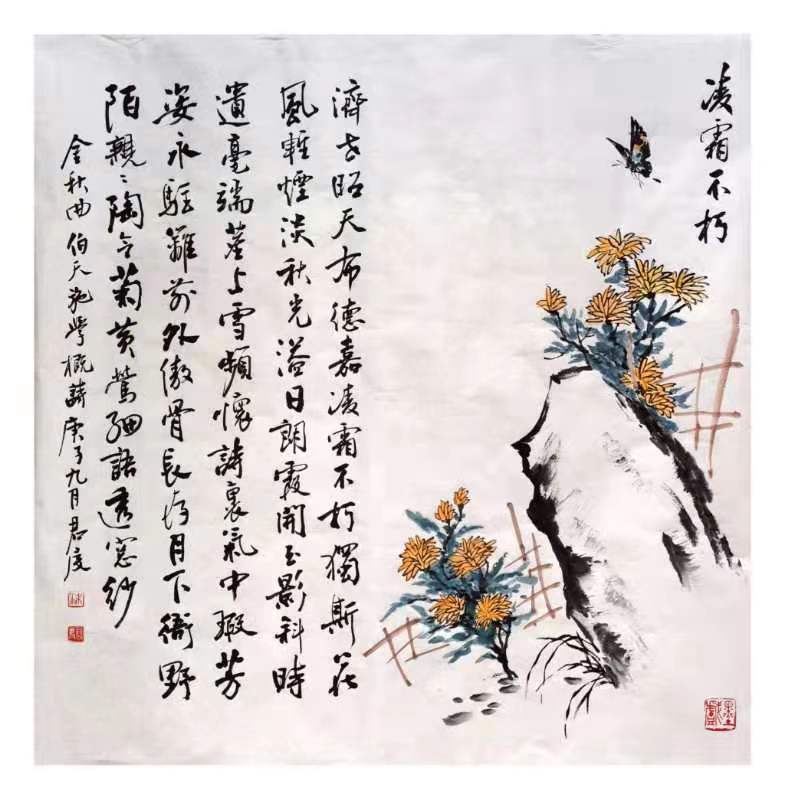 凌霜不朽
濟世昭天布德嘉凌霜不朽獨斯花
風輕煙淡秋光溢日朗霞開玉影斜時
遺毫端上雪頻懷詩裏氣中瑕芳
姿永駐籬前外傲骨長存月下衙野
陌親〻陶令菊黃鶯細語透窗紗
金秋曲伯天施學概詩庚子九月君度